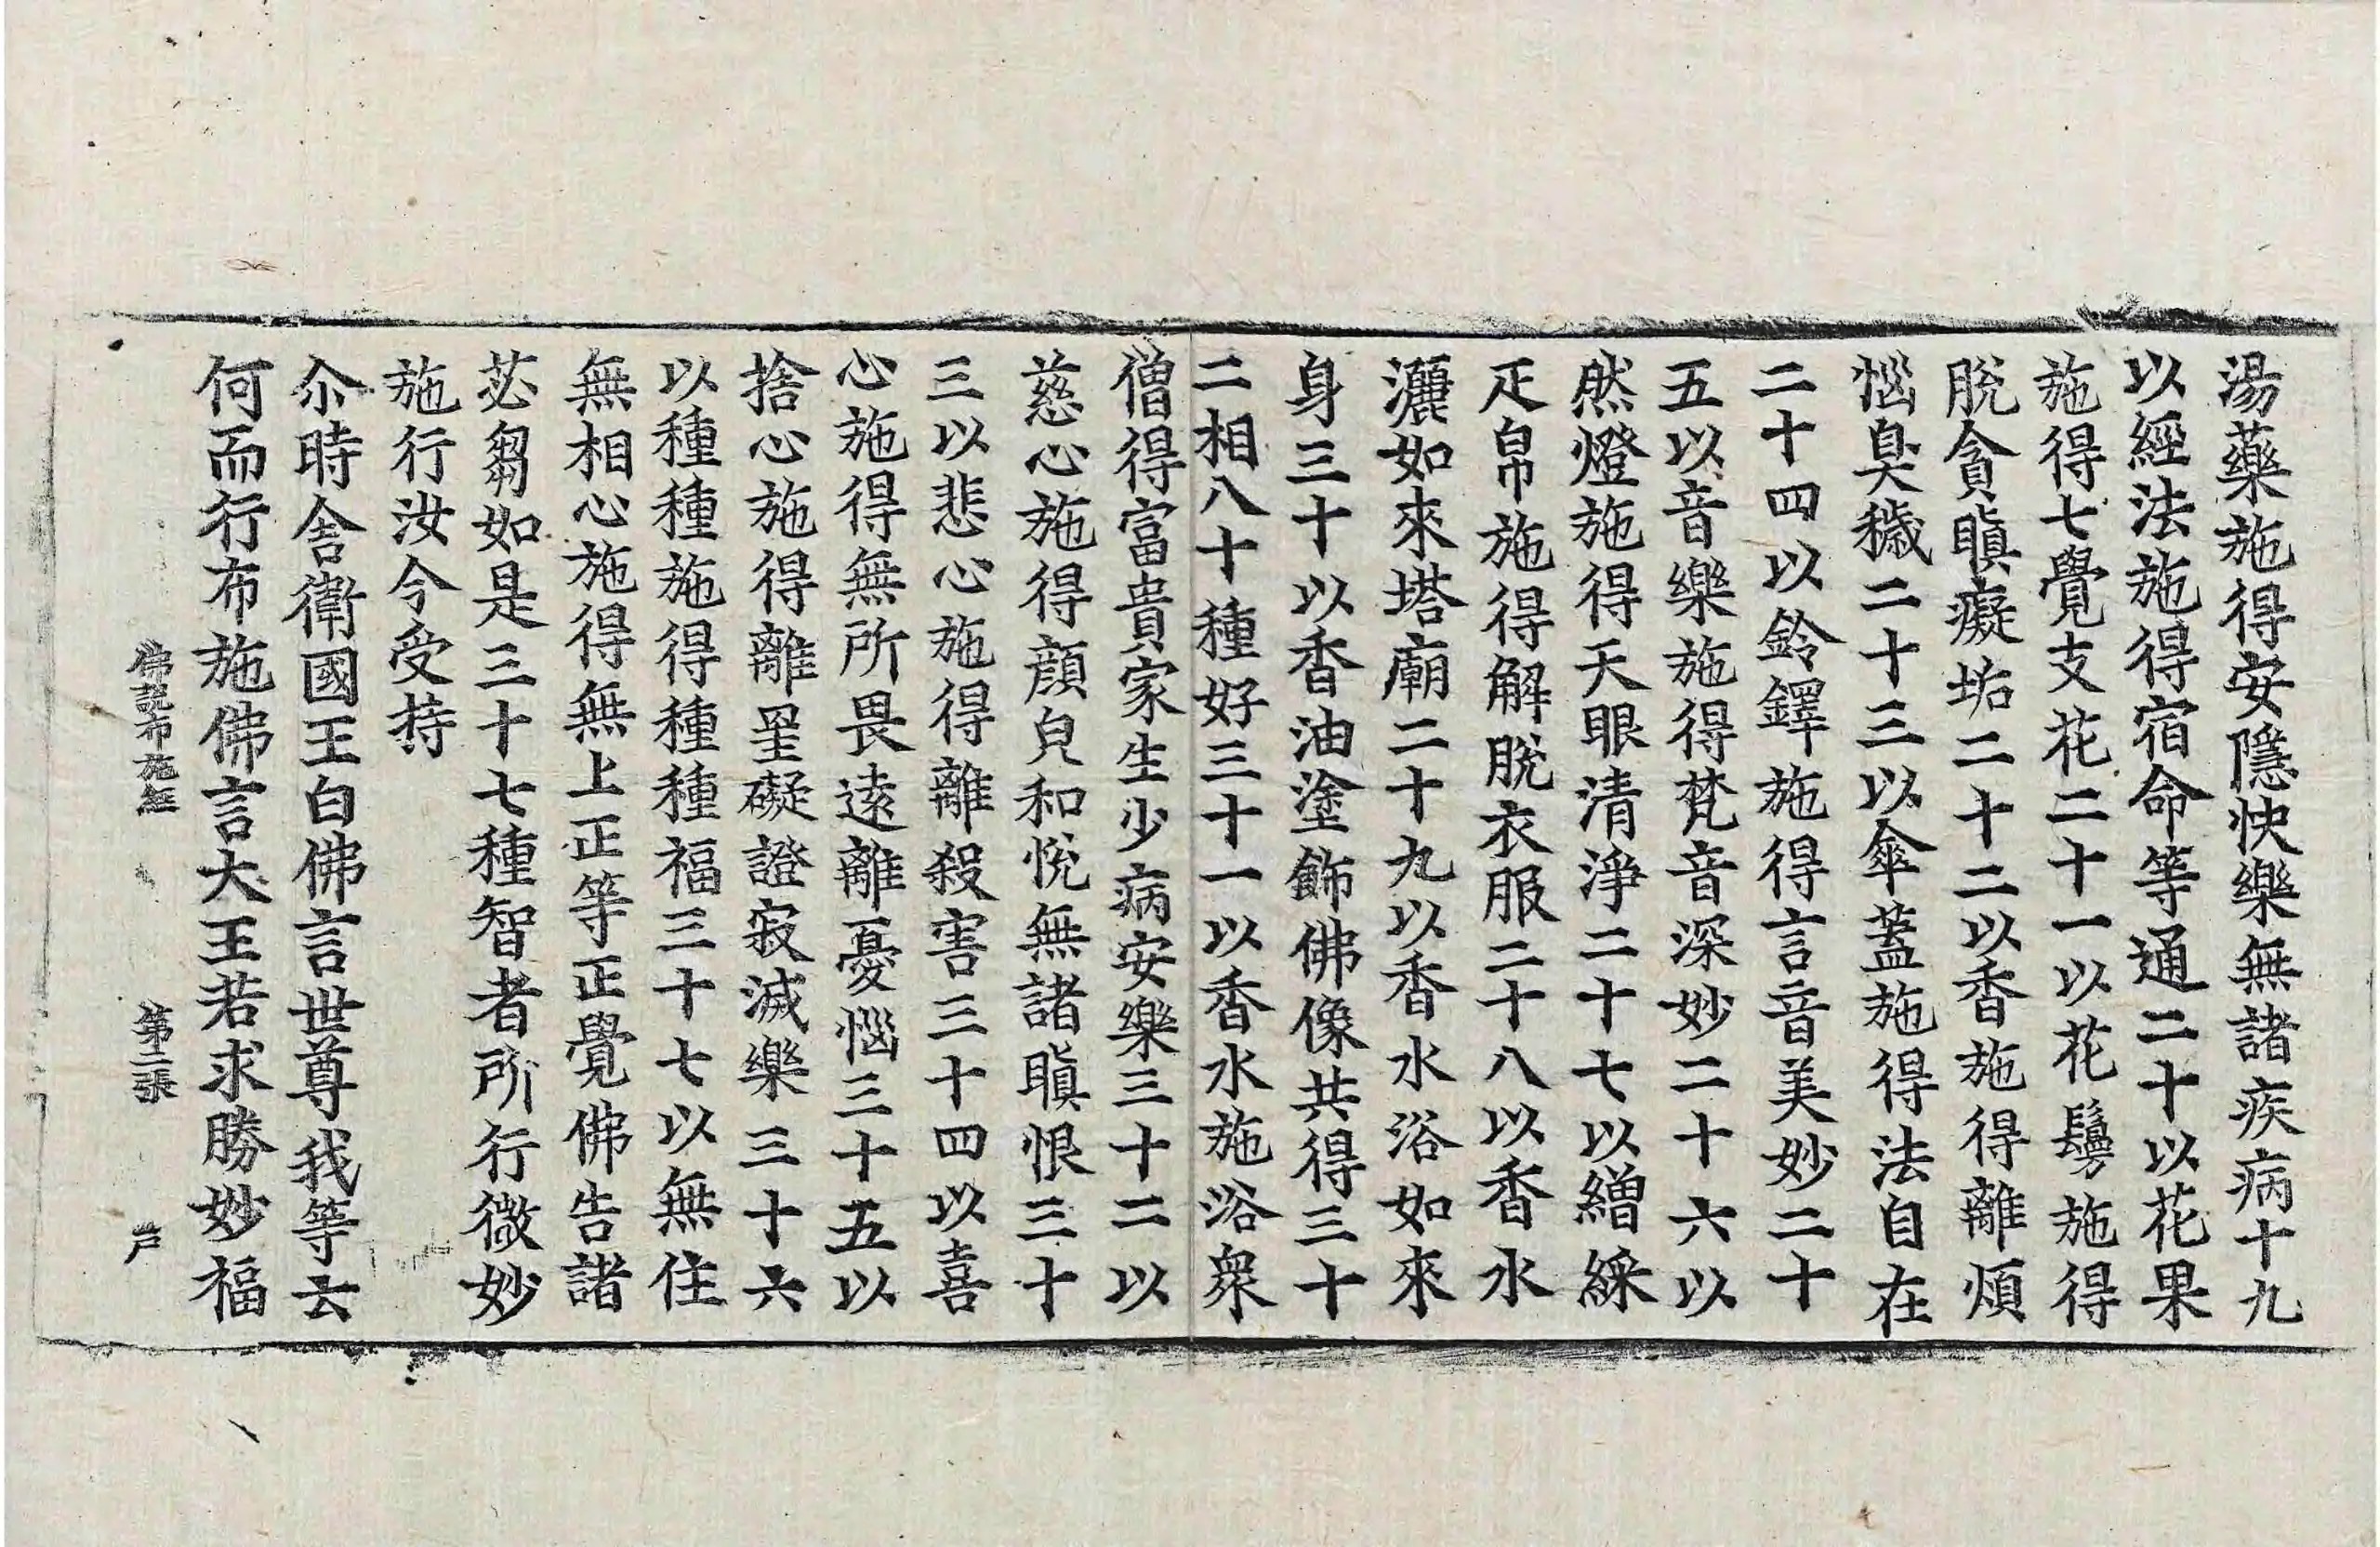 湯藥施得安隱快樂無諸疾病十九
以經法施得宿命等通二十以花果
施得七覺支花二十一以花鬘施得
脫貪瞋癡垢二十二以香施得離煩
惱臭穢二十三以傘蓋施得法自在
二十四以鈴鐸施得言音美妙二十
五以音樂施得梵音深妙二十六以
然燈施得天眼清淨二十七以繒綵
疋帛施得解脫衣服二十八以香水
灑如來塔廟二十九以香水浴如來
身三十以香油塗飾佛像共得三十
二相八十種好三十一以香水施浴衆
僧得富貴家生少病安樂三十二以
慈心施得顔皃和悅無諸瞋恨三十
三以悲心施得離殺害三十四以喜
心施得無所畏逺離憂惱三十五以
捨心施得離罣礙證寂滅樂三十六
以種種施得種種福三十七以無住
無相心施得無上正等正覺佛告諸
苾芻如是三十七種智者所行微妙
施行汝今受持
尒時舍衛國王白佛言世尊我等云
何而行布施佛言大王若求勝妙福
佛說布施經　第二張　戶